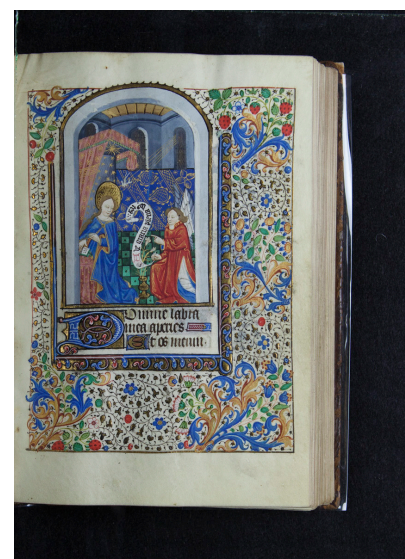 Domine labia
mea aperies
Et os meum.